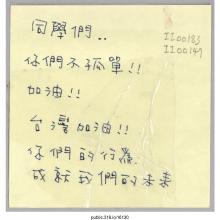 同學們..
II00183
II00149
你們不孤單!!
加油!!
台灣加油!!
你們的行為
成就我們的未來
public.318.io/16130